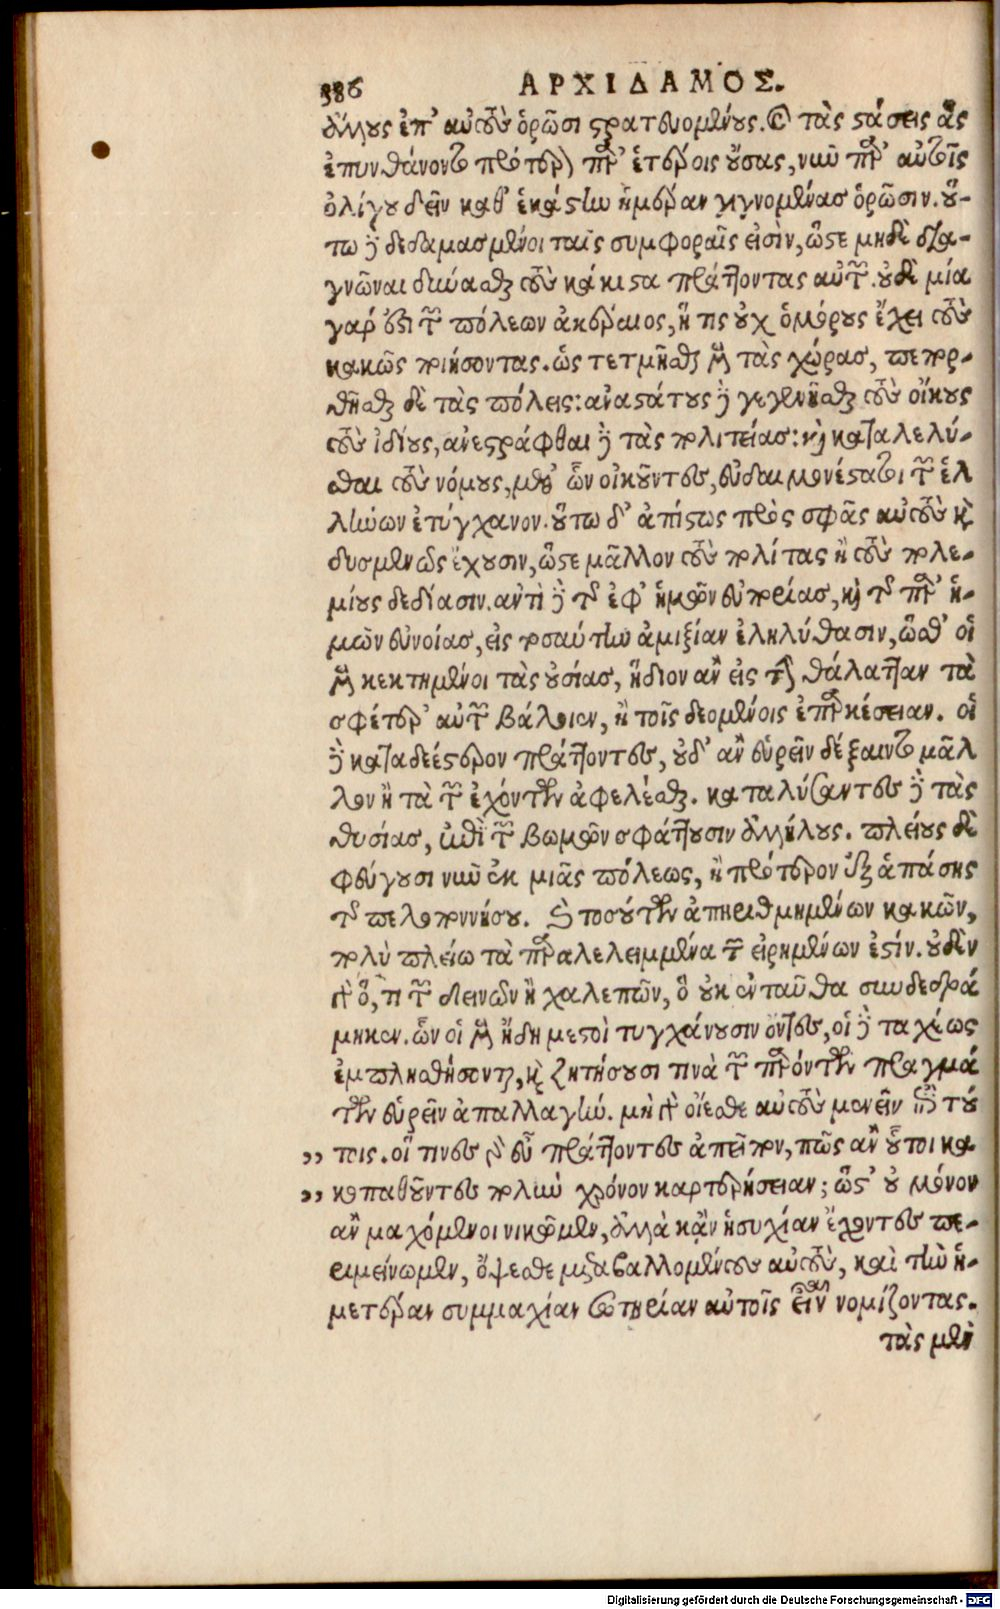 386 ΑΡΧΙΔΑΜΟΣ.
ἄλλους ἐπ' αὐτοὺς ὁρῶσι στρατευομένους. καὶ τὰς στάσεις ἃς
ἐπυνθάνοντο πρότερον παρ' ἑτέροις οὔσας, νῦν παρ' αὑτοῖς
ὀλίγου δεῖν καθ' ἑκάστην ἡμέραν γιγνομένας ὁρῶσιν. οὕ-
τω δὲ δεδαμασμένοι ταῖς συμφοραῖς εἰσὶν, ὥστε μηδὲ δια-
γνῶναι δύνασθαι τοὺς κάκιστα πράττοντας αὐτῶν. οὐδὲ μία
γάρ ἐστι τῶν πόλεων ἀκέραιος, ἥ τις οὐχ ὁμόρους ἔχει τοὺς
κακῶς ποιήσοντας. ὡς τετμῆσθαι μὲν τὰς χώρας, πεπορ-
θῆσθαι δὲ τὰς πόλεις: ἀναστάτους δὲ γεγενῆσθαι τοὺς οἴκους
τοὺς ἰδίους, ἀνεστράφθαι δὲ τὰς πολιτείας: καὶ καταλελύ-
σθαι τοὺς νόμους, μεθ' ὧν οἰκοῦντες, εὐδαιμονέστατοι τῶν ἑλ
λήνων ἐτύγχανον. οὕτω δ' ἀπίστως πρὸς σφᾶς αὐτοὺς καὶ
δυσμενῶς ἔχουσιν, ὥστε μᾶλλον τοὺς πολίτας ἢ τοὺς πολε-
μίους δεδίασιν. ἀντὶ δὲ τῆς ἐφ' ἡμῶν εὐπορίας, καὶ τῆς παρ' ἡ-
μῶν εὐνοίας, εἰς τοσαύτην ἀμιξίαν ἐληλύθασιν, ὥσθ' οἱ
μὲν κεκτημένοι τὰς οὐσίας, ἥδιον ἂν εἰς τὴν θάλατταν τὰ
σφέτερ' αὐτῶν βάλοιεν, ἢ τοῖς δεομένοις ἐπαρκέσειαν. οἱ
δὲ καταδεέστερον πράττοντες, οὐδ' ἂν εὑρεῖν δέξαιντο μᾶλ
λον ἢ τὰ τῶν ἐχόντων ἀφελέσθαι. καταλύσαντες δὲ τὰς
θυσίας, ἐπὶ τῶν βωμῶν σφάττουσιν ἀλλήλους. πλείους δὲ
φεύγουσι νῦν ἐκ μιᾶς πόλεως, ἢ πρότερον ἐξ ἁπάσης
τῆς πελοποννήσου. καὶ τοσούτων ἀπηριθμημένων κακῶν,
πολὺ πλείω τὰ παραλελειμμένα τῶν εἰρημένων ἐστίν. οὐδὲν
γὰρ ὅ, τι τῶν δεινῶν ἢ χαλεπῶν, ὃ οὐκ ἐνταῦθα συνδεδρά
μηκεν. ὧν οἱ μὲν ἤδη μεστοὶ τυγχάνουσιν ὄντες, οἱ δὲ ταχέως
ἐμπλησθήσονται, καὶ ζητήσουσί τινα τῶν παρόντων πραγμά
των εὑρεῖν ἀπαλλαγήν. μὴ γὰρ οἴεσθε αὐτοὺς μενεῖν ἐπὶ τού
τοις. οἵ τινες γὰρ εὖ πράττοντες ἀπεῖπον, πῶς ἂν οὗτοι κα
κοπαθοῦντες πολὺν χρόνον καρτερήσειαν; ὥστ' οὐ μόνον
ἂν μαχόμενοι νικῶμεν, ἀλλὰ κἂν ἡσυχίαν ἔχοντες πε-
ριμείνωμεν, ὄψεσθε μεταβαλλομένους αὐτοὺς, καὶ τὴν ἡ-
μετέραν συμμαχίαν σωτηρίαν αὐτοῖς εἶναι νομίζοντας.
τὰς μὲν
Digitalisierung gefördert durch die Deutsche Forschungsgemeinschaft - DFG